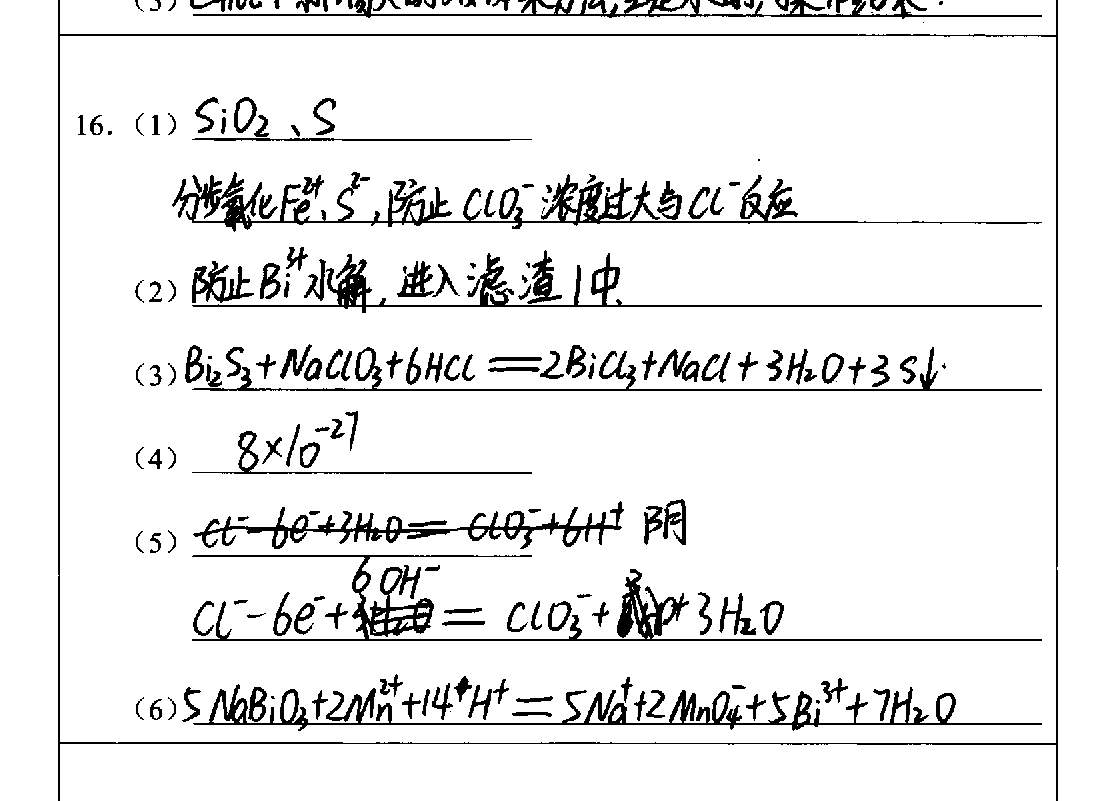 16. (1) SiO₂、S
分步氧化Fe²⁺、S²⁻,防止ClO₃⁻浓度过大与Cl⁻反应
(2) 防止Bi³⁺水解,进入滤渣1中
(3) Bi₂S₃+NaClO₃+6HCl=2BiCl₃+NaCl+3H₂O+3S↓
(4) 8×10⁻²⁷
(5) Cl⁻-6e⁻+3H₂O=ClO₃⁻+6H⁺ 阴
Cl⁻-6e⁻+6OH⁻=ClO₃⁻+3H₂O
(6) 5NaBiO₃+2Mn²⁺+14H⁺=5Na⁺+2MnO₄⁻+5Bi³⁺+7H₂O